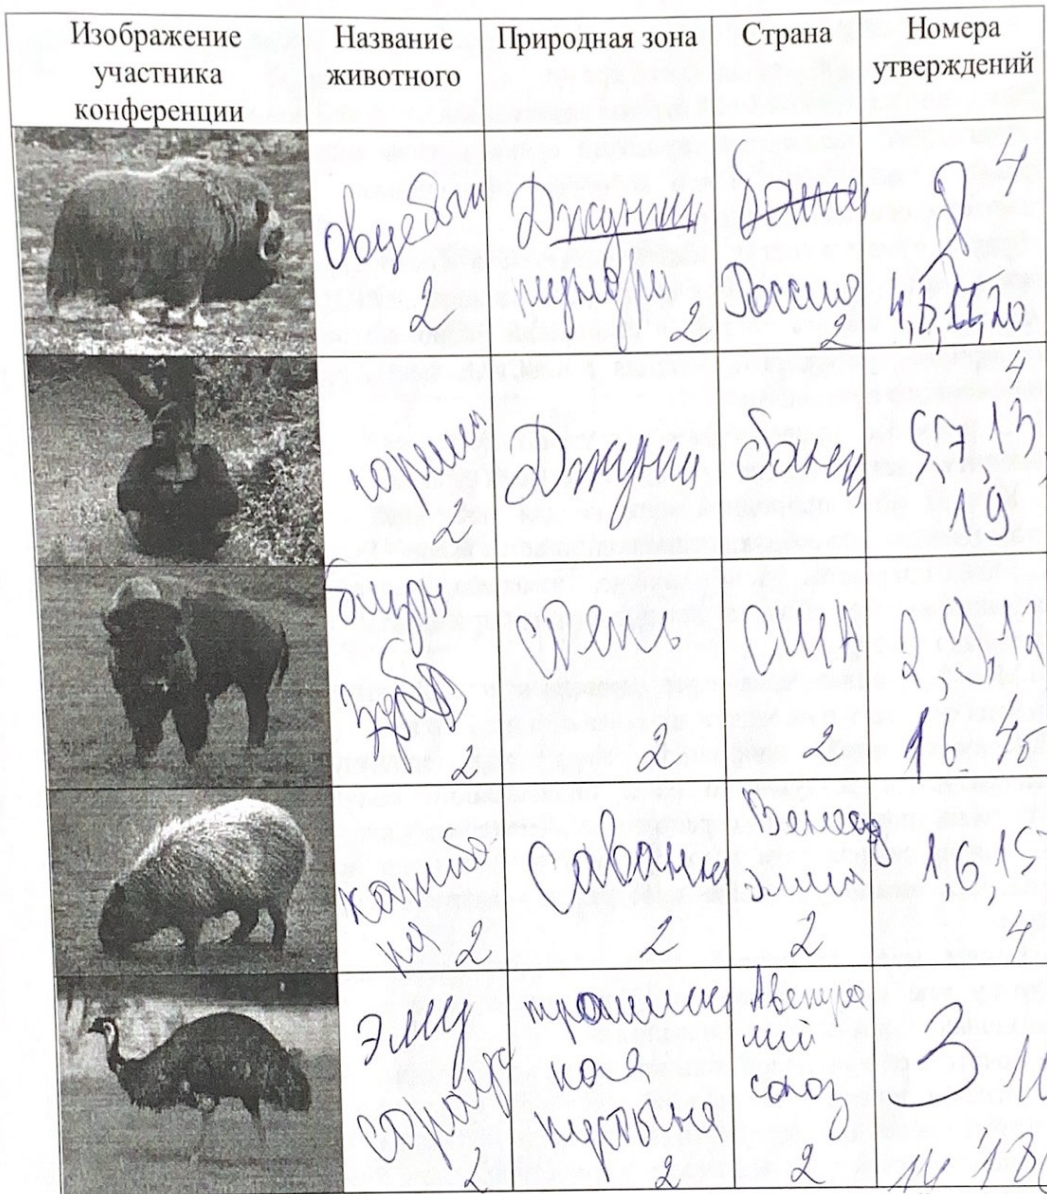 Изображение участника конференции
Название животного
Природная зона
Страна
Номера утверждений
овцебык
2
Джунгли
тундра
2
Россия
2
4
4, 8, 11, 20
2
Джунгли
4
5, 7, 13,
19
бизон
2
Степь
2
США
2
2, 9, 12
16
капиба-
ра
2
Саванна
2
Венесу
эла
2
1, 6, 15
4
Эму
страус
2
ная
пустыня
2
союз
2
3
14